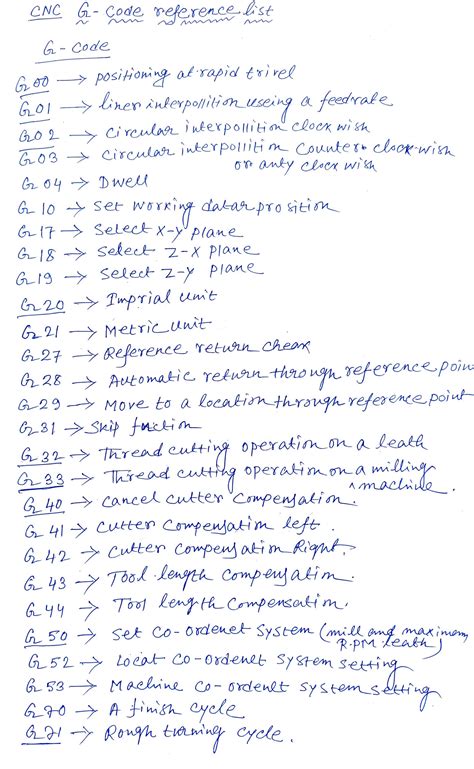 CNC G-Code reference list
G-Code
G00 → positioning at rapid trivel
G01 → liner interpollition useing a feedrate
G02 → Circular interpollition clock wish
G03 → Circular interpollition Counter clock-wish
or anty clock wish
G04 → Dwell
G10 → Set working datar prosition
G17 → Select X-Y plane
G18 → Select Z-X plane
G19 → Select Z-Y plane
G20 → Imprial unit
G21 → Metric unit
G27 → Reference return cheak
G28 → Automatic return through reference poin
G29 → Move to a location through reference point
G31 → Skip function
G32 → Thread cutting operation on a leath
G33 → Thread cutting operation on a milling
machine.
G40 → Cancel cutter Compensation.
G41 → Cutter Compensation left.
G42 → Cutter Compensation Right.
G43 → Tool length Compensation.
G44 → Tool length Compensation.
G50 → Set Co-ordenet System (mill and maximum
R.P.M leath)
G52 → Locat Co-ordenet System setting
G53 → Machine Co-ordenet System setting
G70 → A finish cycle
G71 → Rough turning cycle.